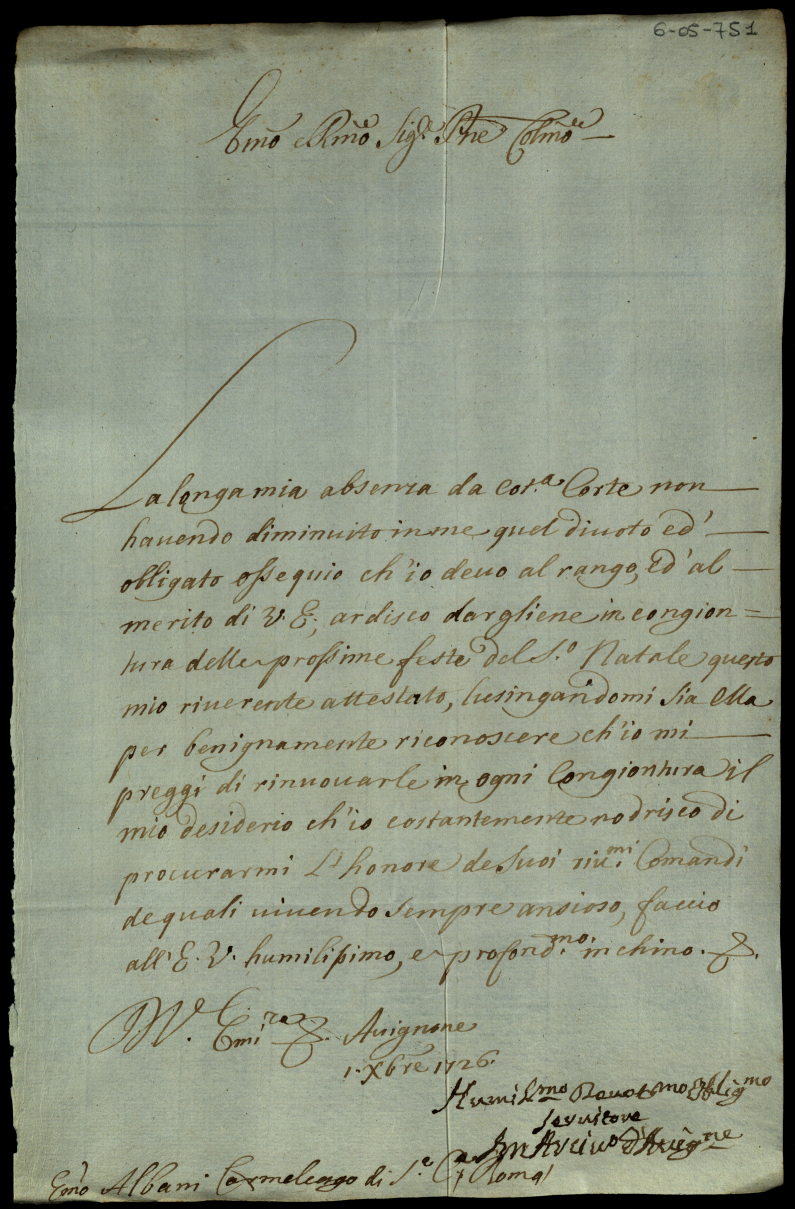 6-05-751
Emo e Rmo Sigre Pne Colmo
La longa mia absenza da cot.a Corte non
hauendo diminuito in me quel diuoto ed'
obligato ossequio ch'io deuo al rango, ed' al
merito di V. E., ardisco dargliene in congion=
tura delle prossime feste del S.o Natale questo
mio riuerente attestato, lusingandomi sia ella
per benignamente riconoscere ch'io mi
preggi di rinuouarle in ogni Congiontura il
mio desiderio ch'io costantemente nodrisco di
procurarmi L'honore de suoi riu.mi Comandi
de quali uiuendo sempre ansioso, faccio
all' E. V. humilissimo, e profond.mo inchino. &.
D V. Emi.za &. Auignone
1. Xbre 1726.
Humil.mo Deuot.mo Obblig.mo
seruitore
Arciuo d'Auig.ne
Emo Albani Carmelengo di S.e C.a Roma